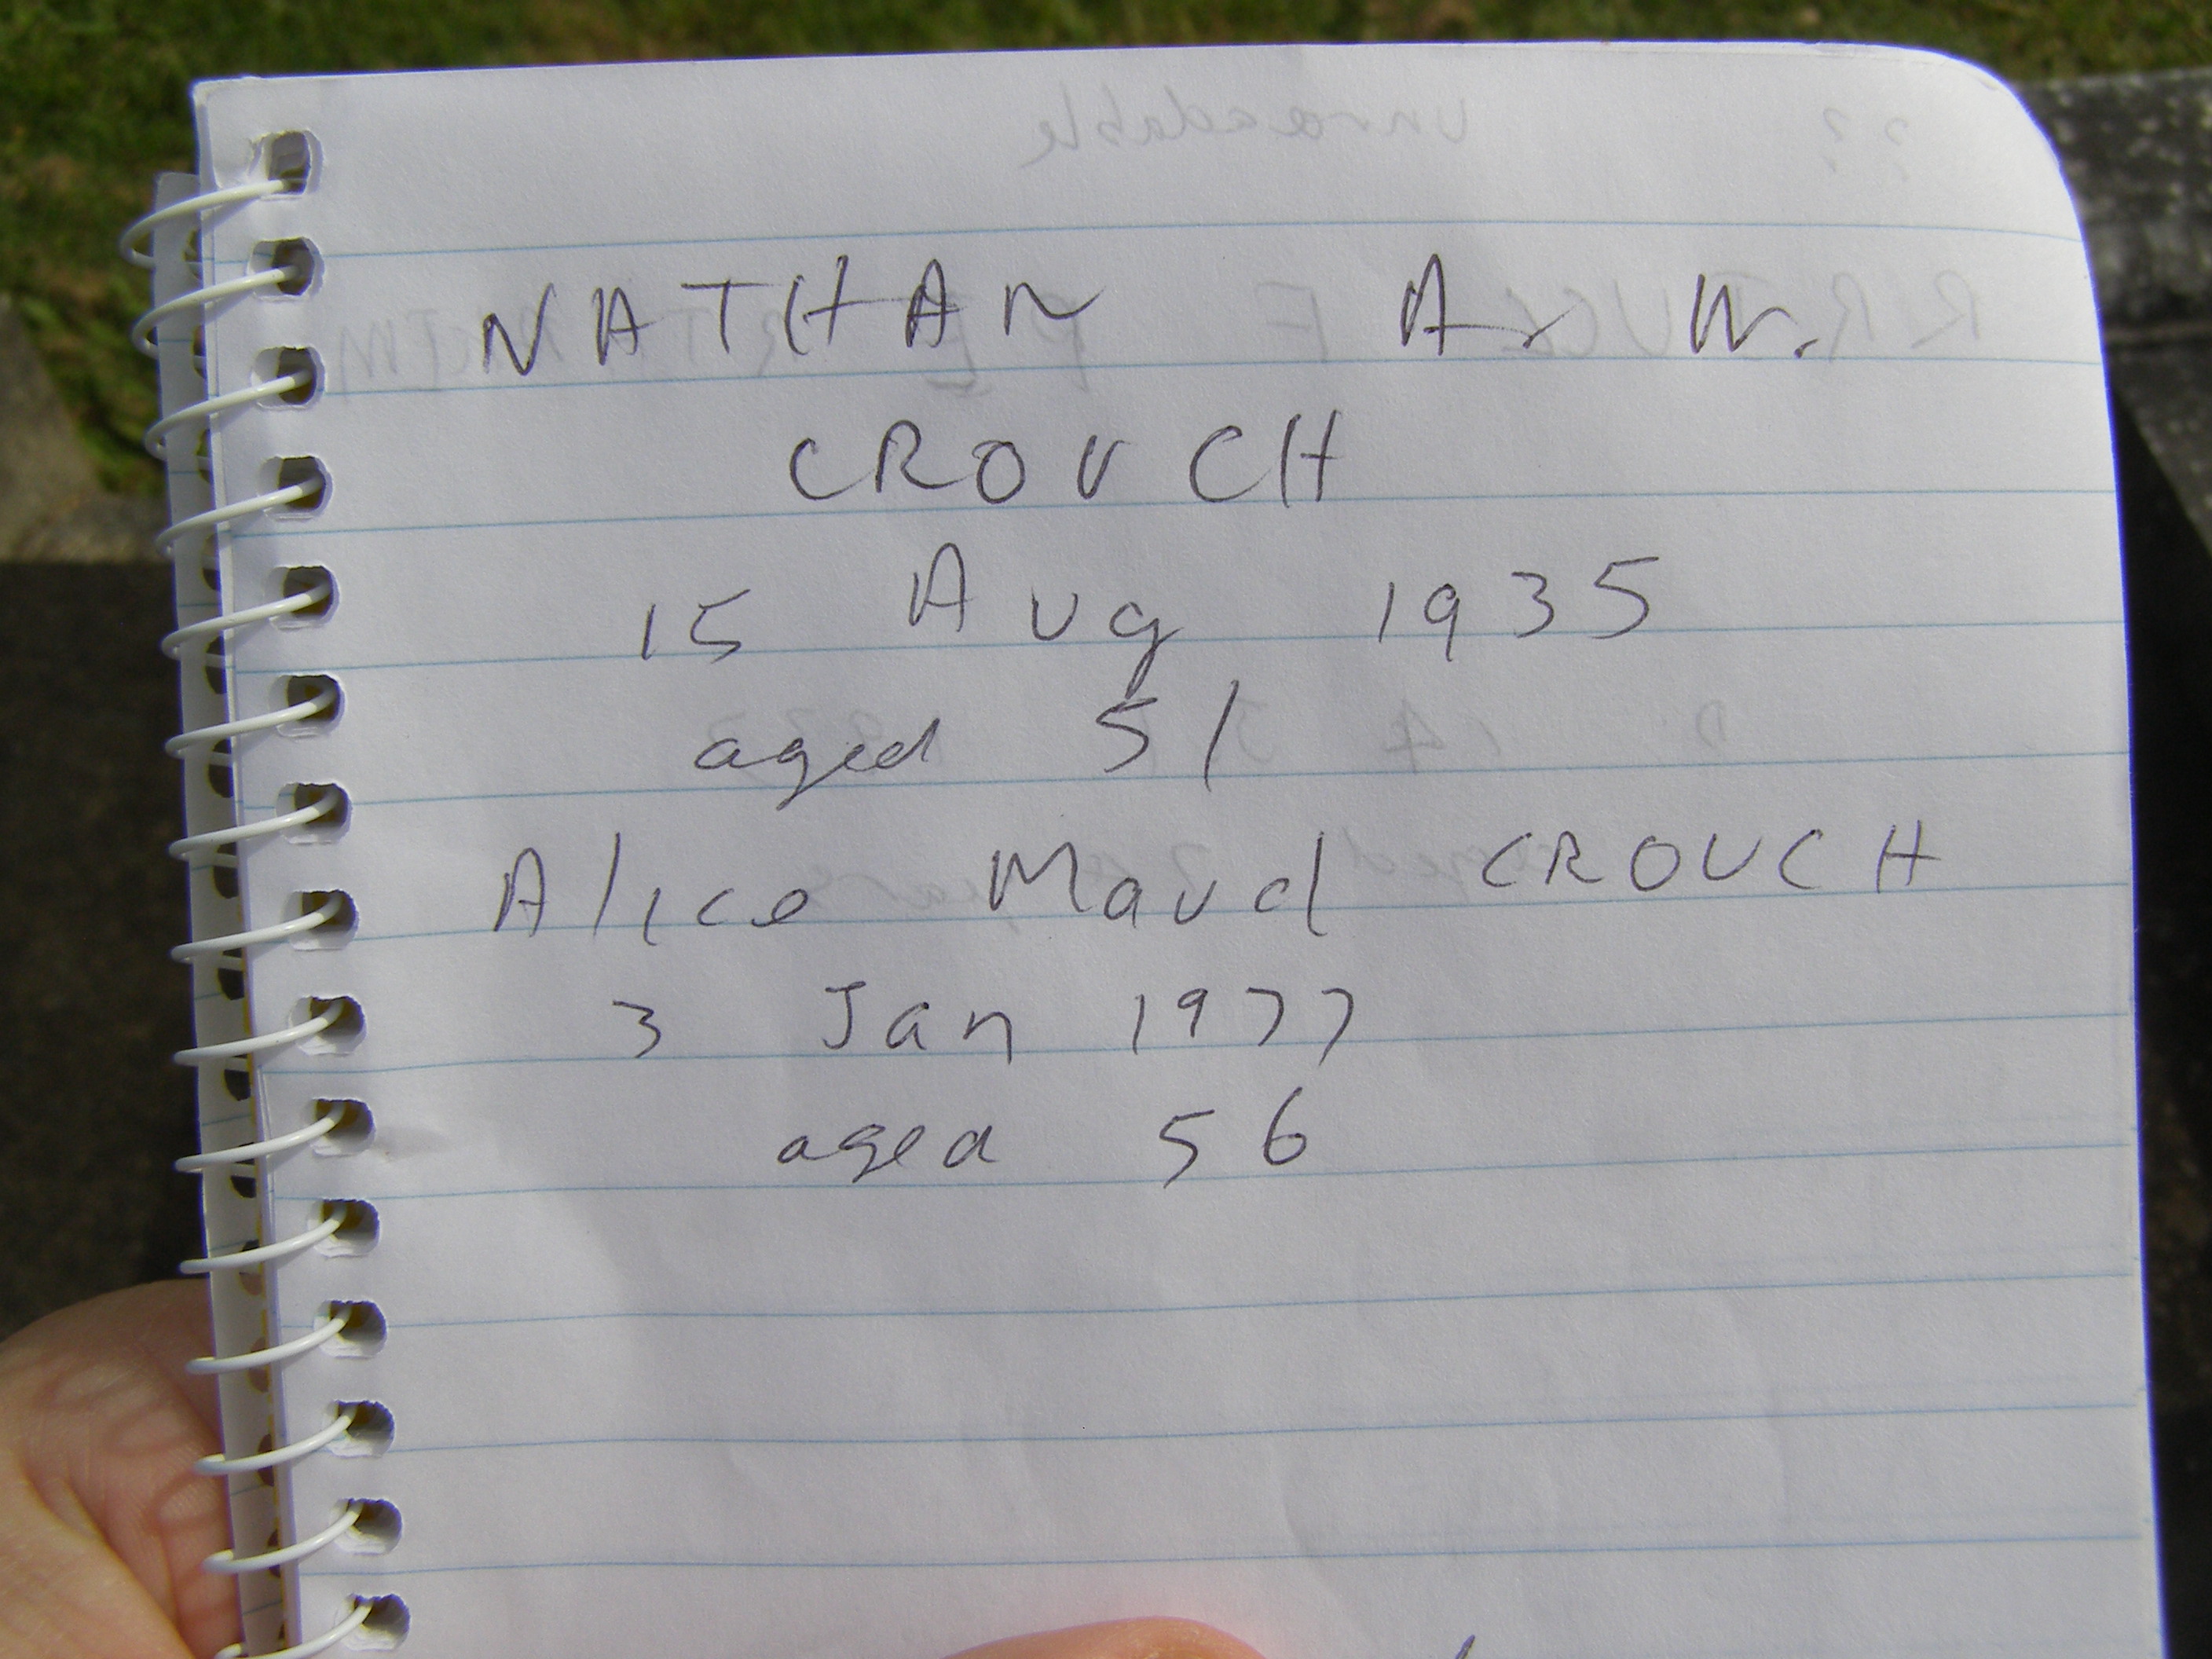 NATHAN A. W.
CROUCH
15 Aug 1935
aged 51
Alice Maud CROUCH
3 Jan 1977
aged 56